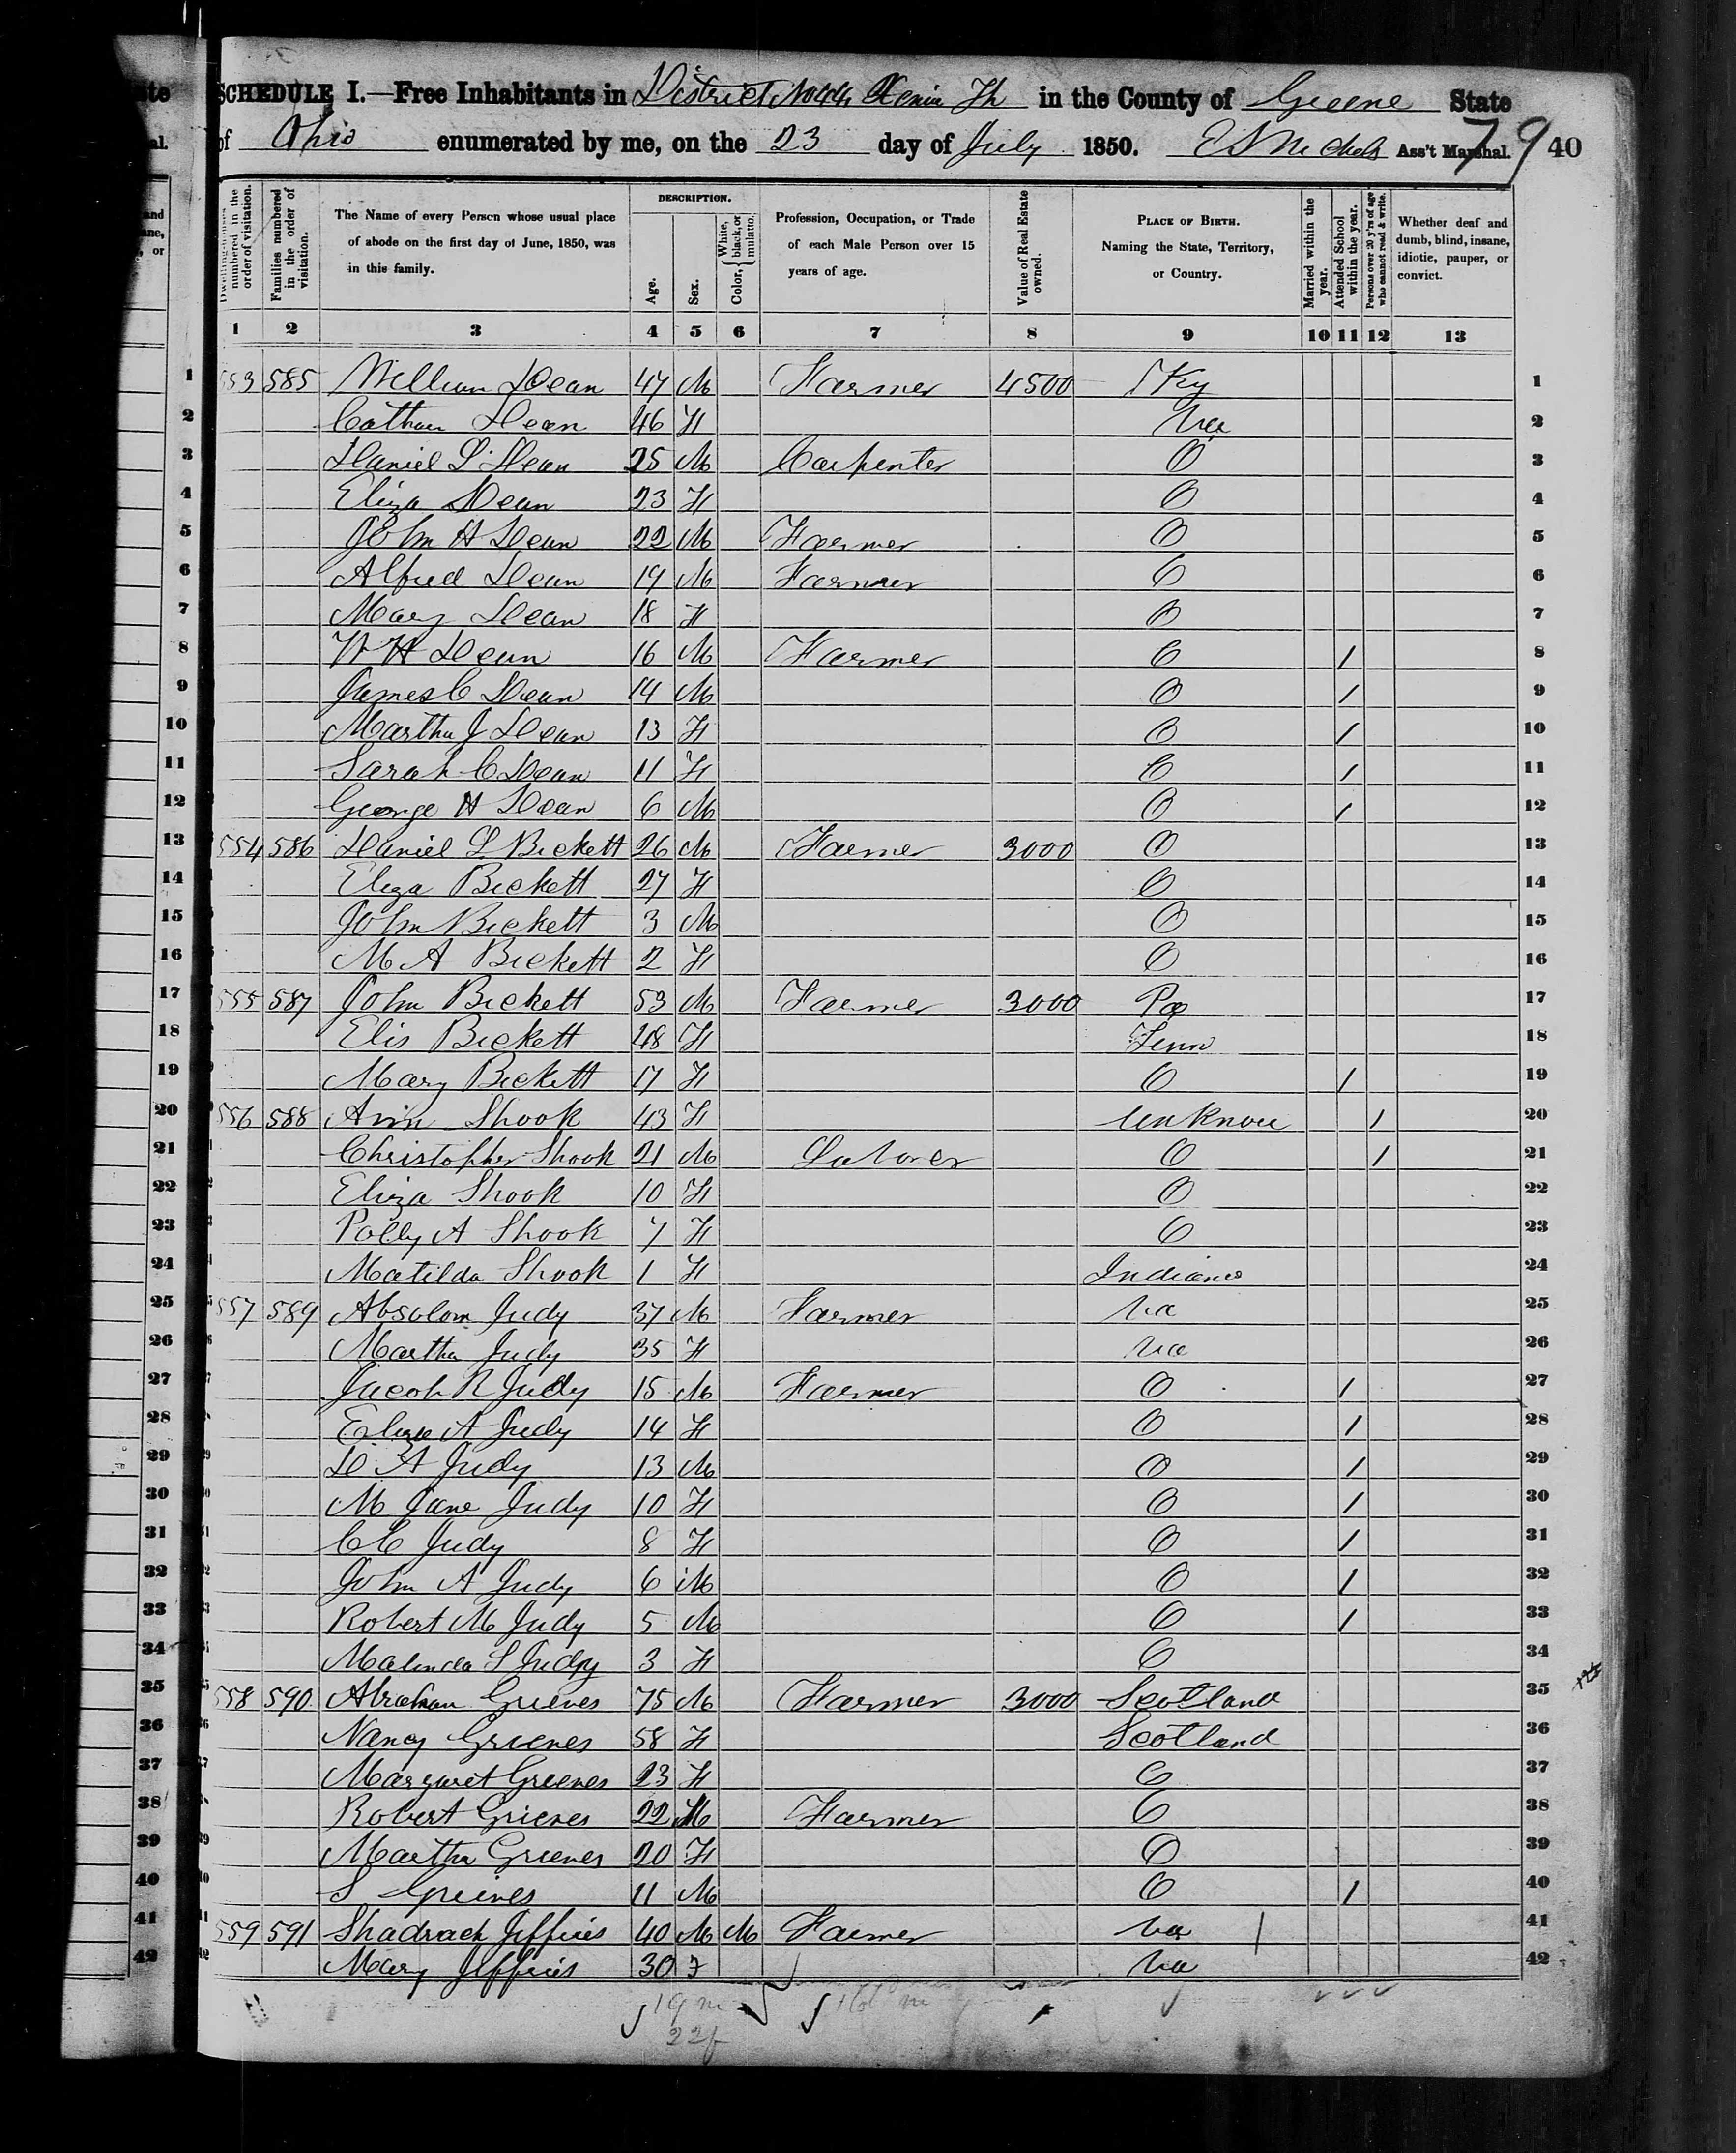 SCHEDULE I.—Free Inhabitants in District No 44 Xenia Th in the County of Greene State
of Ohio enumerated by me, on the 23 day of July 1850. Ass't Marshal. 79 40
Dwelling-houses numbered in the order of visitation.
Families numbered in the order of visitation.
The Name of every Person whose usual place of abode on the first day of June, 1850, was in this family.
DESCRIPTION.
Age.
Sex.
Color, { White, black, or mulatto.
Profession, Occupation, or Trade of each Male Person over 15 years of age.
Value of Real Estate owned.
PLACE OF BIRTH. Naming the State, Territory, or Country.
Married within the year.
Attended School within the year.
Persons over 20 y'rs of age who cannot read & write.
Whether deaf and dumb, blind, insane, idiotic, pauper, or convict.
1 2 3 4 5 6 7 8 9 10 11 12 13
1 553 585 William Dean 47 M Farmer 4500 Ky 1
2 Cathan Dean 46 F Va 2
3 Daniel L Dean 25 M Carpenter O 3
4 Eliza Dean 23 F O 4
5 John H Dean 22 M Farmer O 5
6 Alfred Dean 19 M Farmer O 6
7 Mary Dean 18 F O 7
8 W H Dean 16 M Farmer O / 8
9 James C Dean 14 M O / 9
10 Martha J Dean 13 F O / 10
11 Sarah C Dean 11 F O / 11
12 George H Dean 6 M O / 12
13 554 586 Daniel L Bickett 26 M Farmer 3000 O 13
14 Eliza Bickett 27 F O 14
15 John Bickett 3 M O 15
16 M A Bickett 2 F O 16
17 555 587 John Bickett 53 M Farmer 3000 Pa 17
18 Elis Bickett 48 F Tenn 18
19 Mary Bickett 17 F O / 19
20 556 588 Ann Shook 43 F Unknown / 20
21 Christopher Shook 21 M Laborer O / 21
22 Eliza Shook 10 F O 22
23 Polly A Shook 7 F O 23
24 Matilda Shook 1 F Indiana 24
25 557 589 Absolom Judy 37 M Farmer Va 25
26 Martha Judy 35 F Va 26
27 Jacob R Judy 15 M Farmer O / 27
28 Eliza A Judy 14 F O / 28
29 D A Judy 13 M O / 29
30 M Jane Judy 10 F O / 30
31 C C Judy 8 F O / 31
32 John A Judy 6 M O / 32
33 Robert M Judy 5 M O / 33
34 Malinda S Judy 3 F O 34
35 558 590 Abraham Grieves 75 M Farmer 3000 Scotland 35
36 Nancy Grieves 58 F Scotland 36
37 Margaret Grieves 23 F O 37
38 Robert Grieves 22 M Farmer O 38
39 Martha Grieves 20 F O 39
40 S Grieves 11 M O / 40
41 559 591 Shadrach Jeffries 40 M M Farmer Va / 41
42 Mary Jeffries 30 F Va 42
19 m
22 f